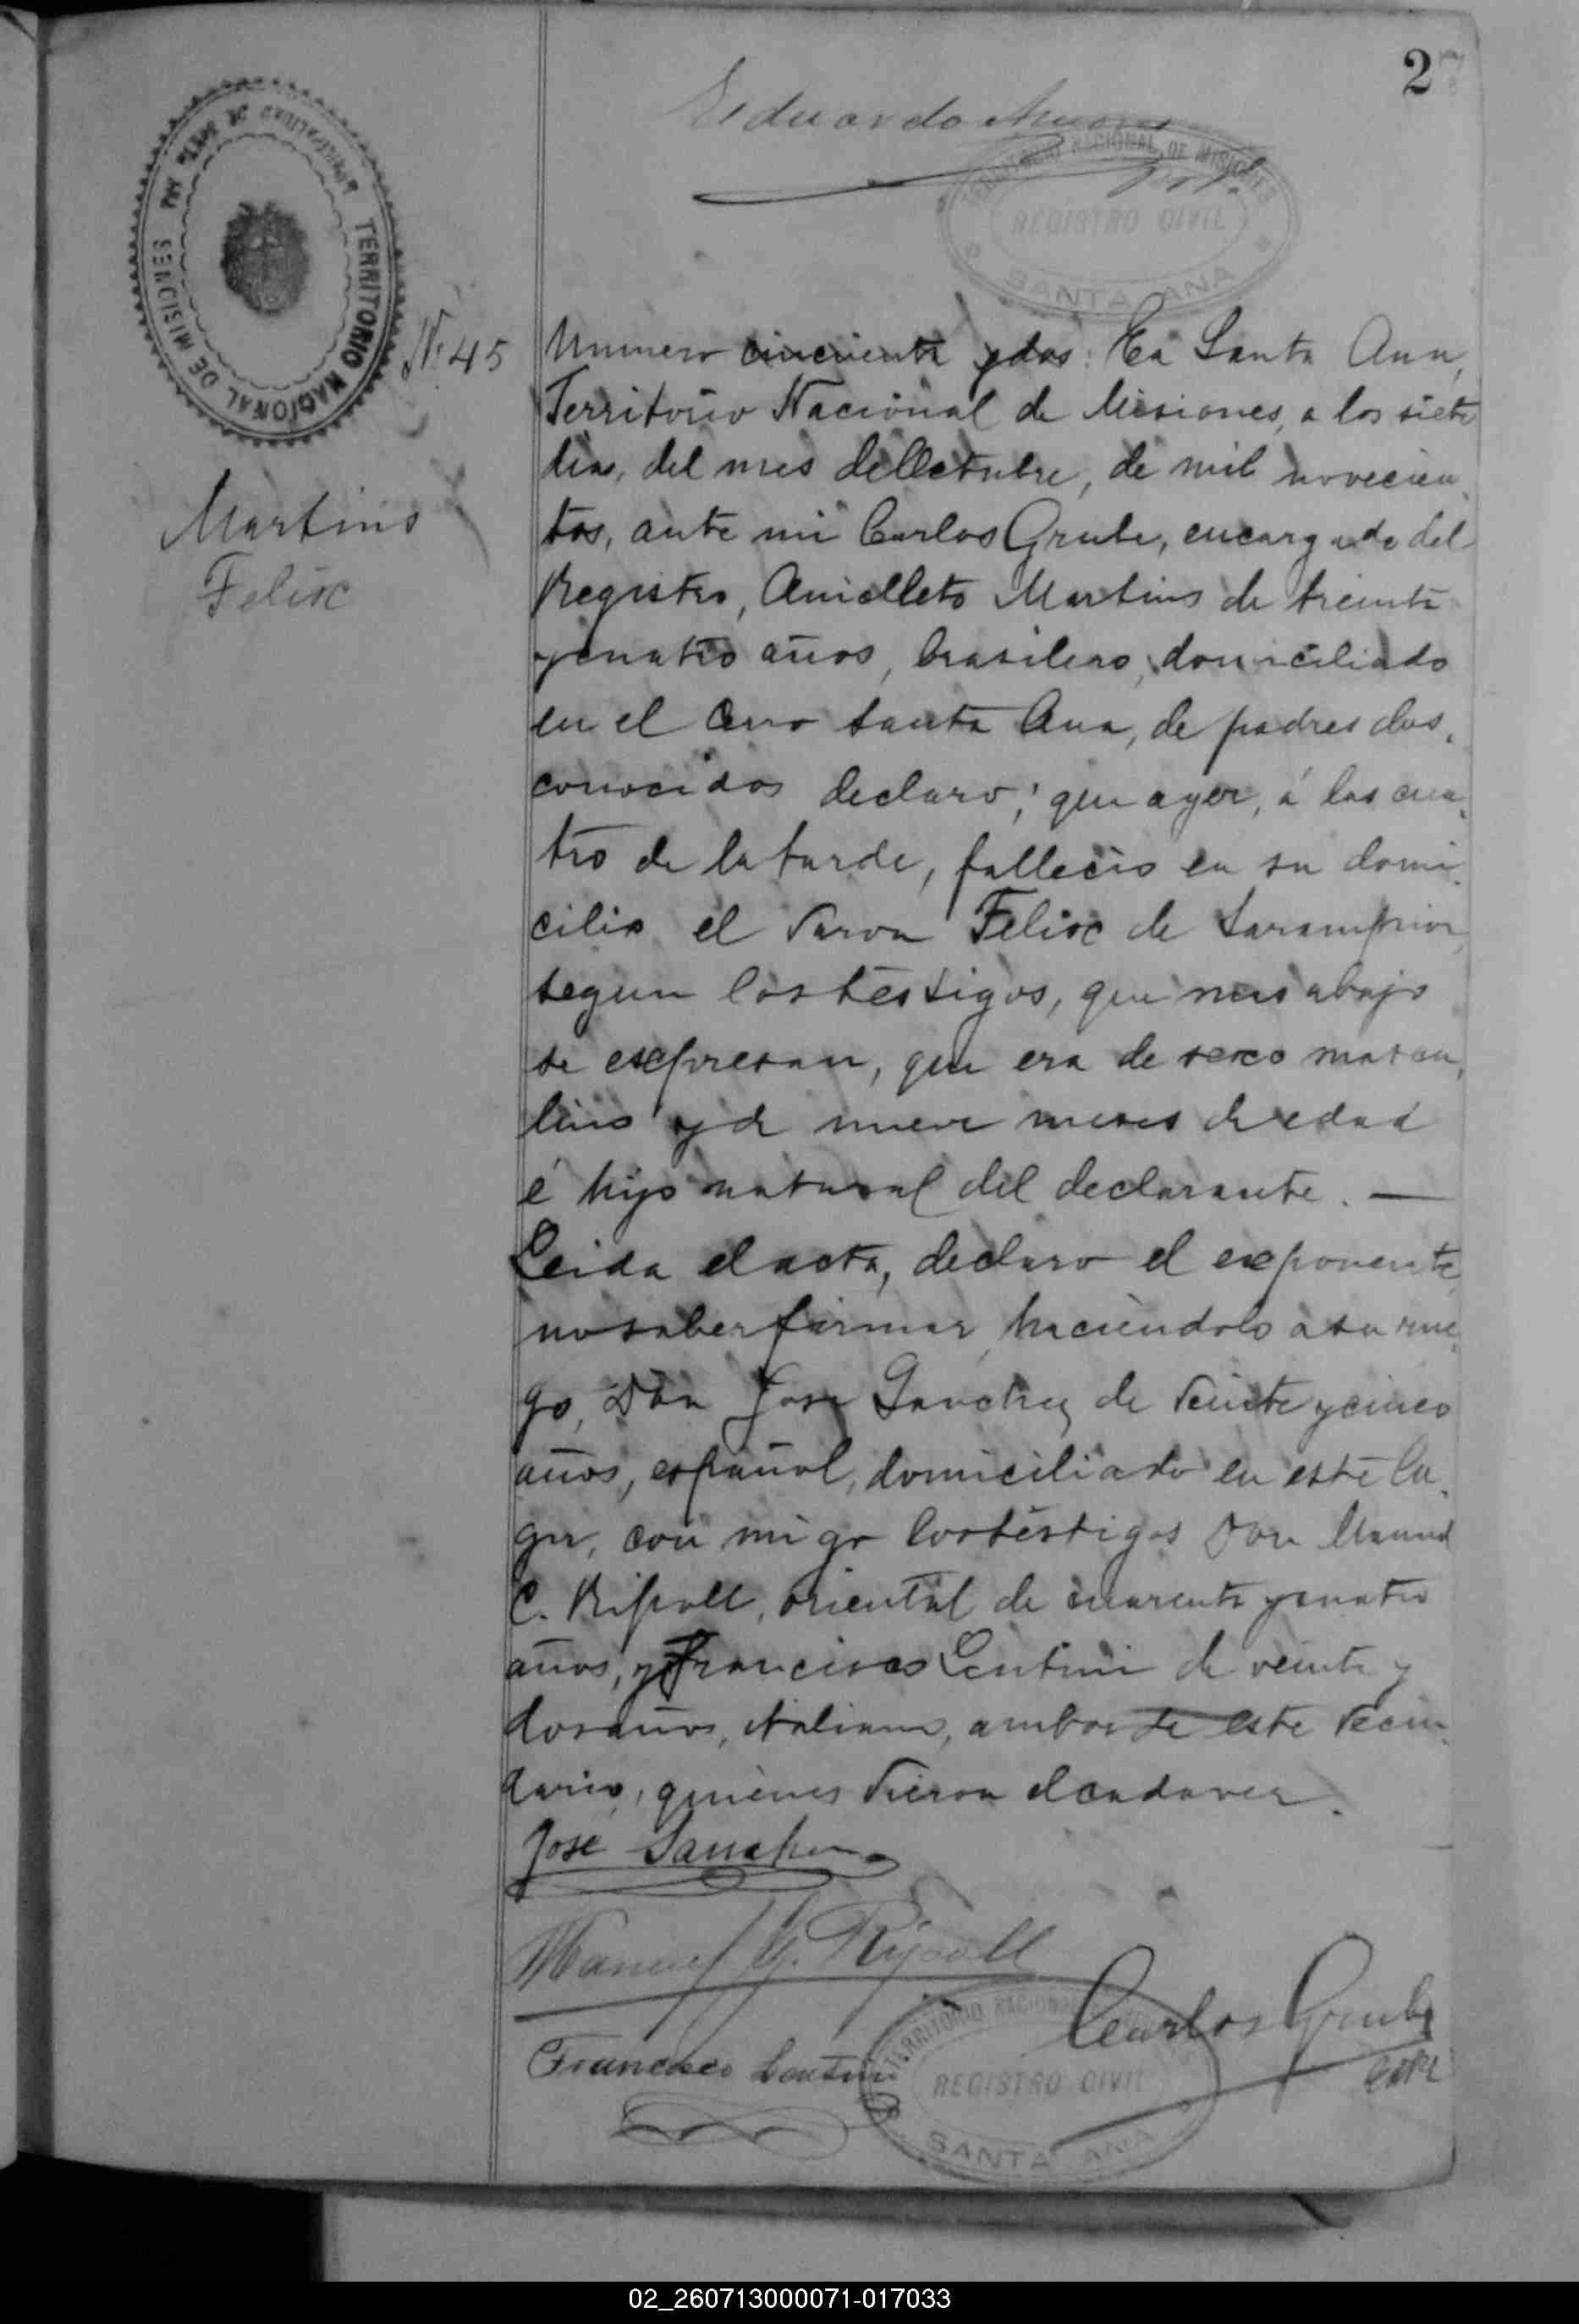 27
Eduardo
TERRITORIO NACIONAL DE MISIONES
REGISTRO CIVIL
SANTA ANA
TERRITORIO NACIONAL DE MISIONES
Nº 45
Martins
Felix
Numero cincuenta y dos: En Santa Ana,
Territorio Nacional de Misiones, a los siete
dias, del mes de Octubre, de mil novecien
tos, ante mi Carlos Grube, encargado del
Registro, Aniclleto Martins de treinta
y cuatro años, brasilero, domiciliado
en el Cerro Santa Ana, de padres des,
conocidos declaro; que ayer, á las cua,
tro de la tarde, fallecio en su domi,
cilio el varon Felix de Sarampion,
segun los testigos, que mas abajo
se expresan, que era de sexo mascu,
lino y de nueve meses de edad
é hijo natural del declarante. —
Leida el acta, declaro el exponente
no saber firmar, haciendolo a su rue,
go, Don Jose Sanchez de veinte y cinco
años, español, domiciliado en este lu,
gar, con migo los testigos Don Manuel
C. Ripoll, oriental de cuarenta y cuatro
años, y Francisco Lentini de veinte y
dos años, italiano, ambos de este vecin,
dario, quienes vieron el cadaver.
José Sanchez
Manuel G. Ripoll
Carlos Grube
Francisco Lentini
TERRITORIO NACIONAL
REGISTRO CIVIL
SANTA ANA
02_260713000071-017033